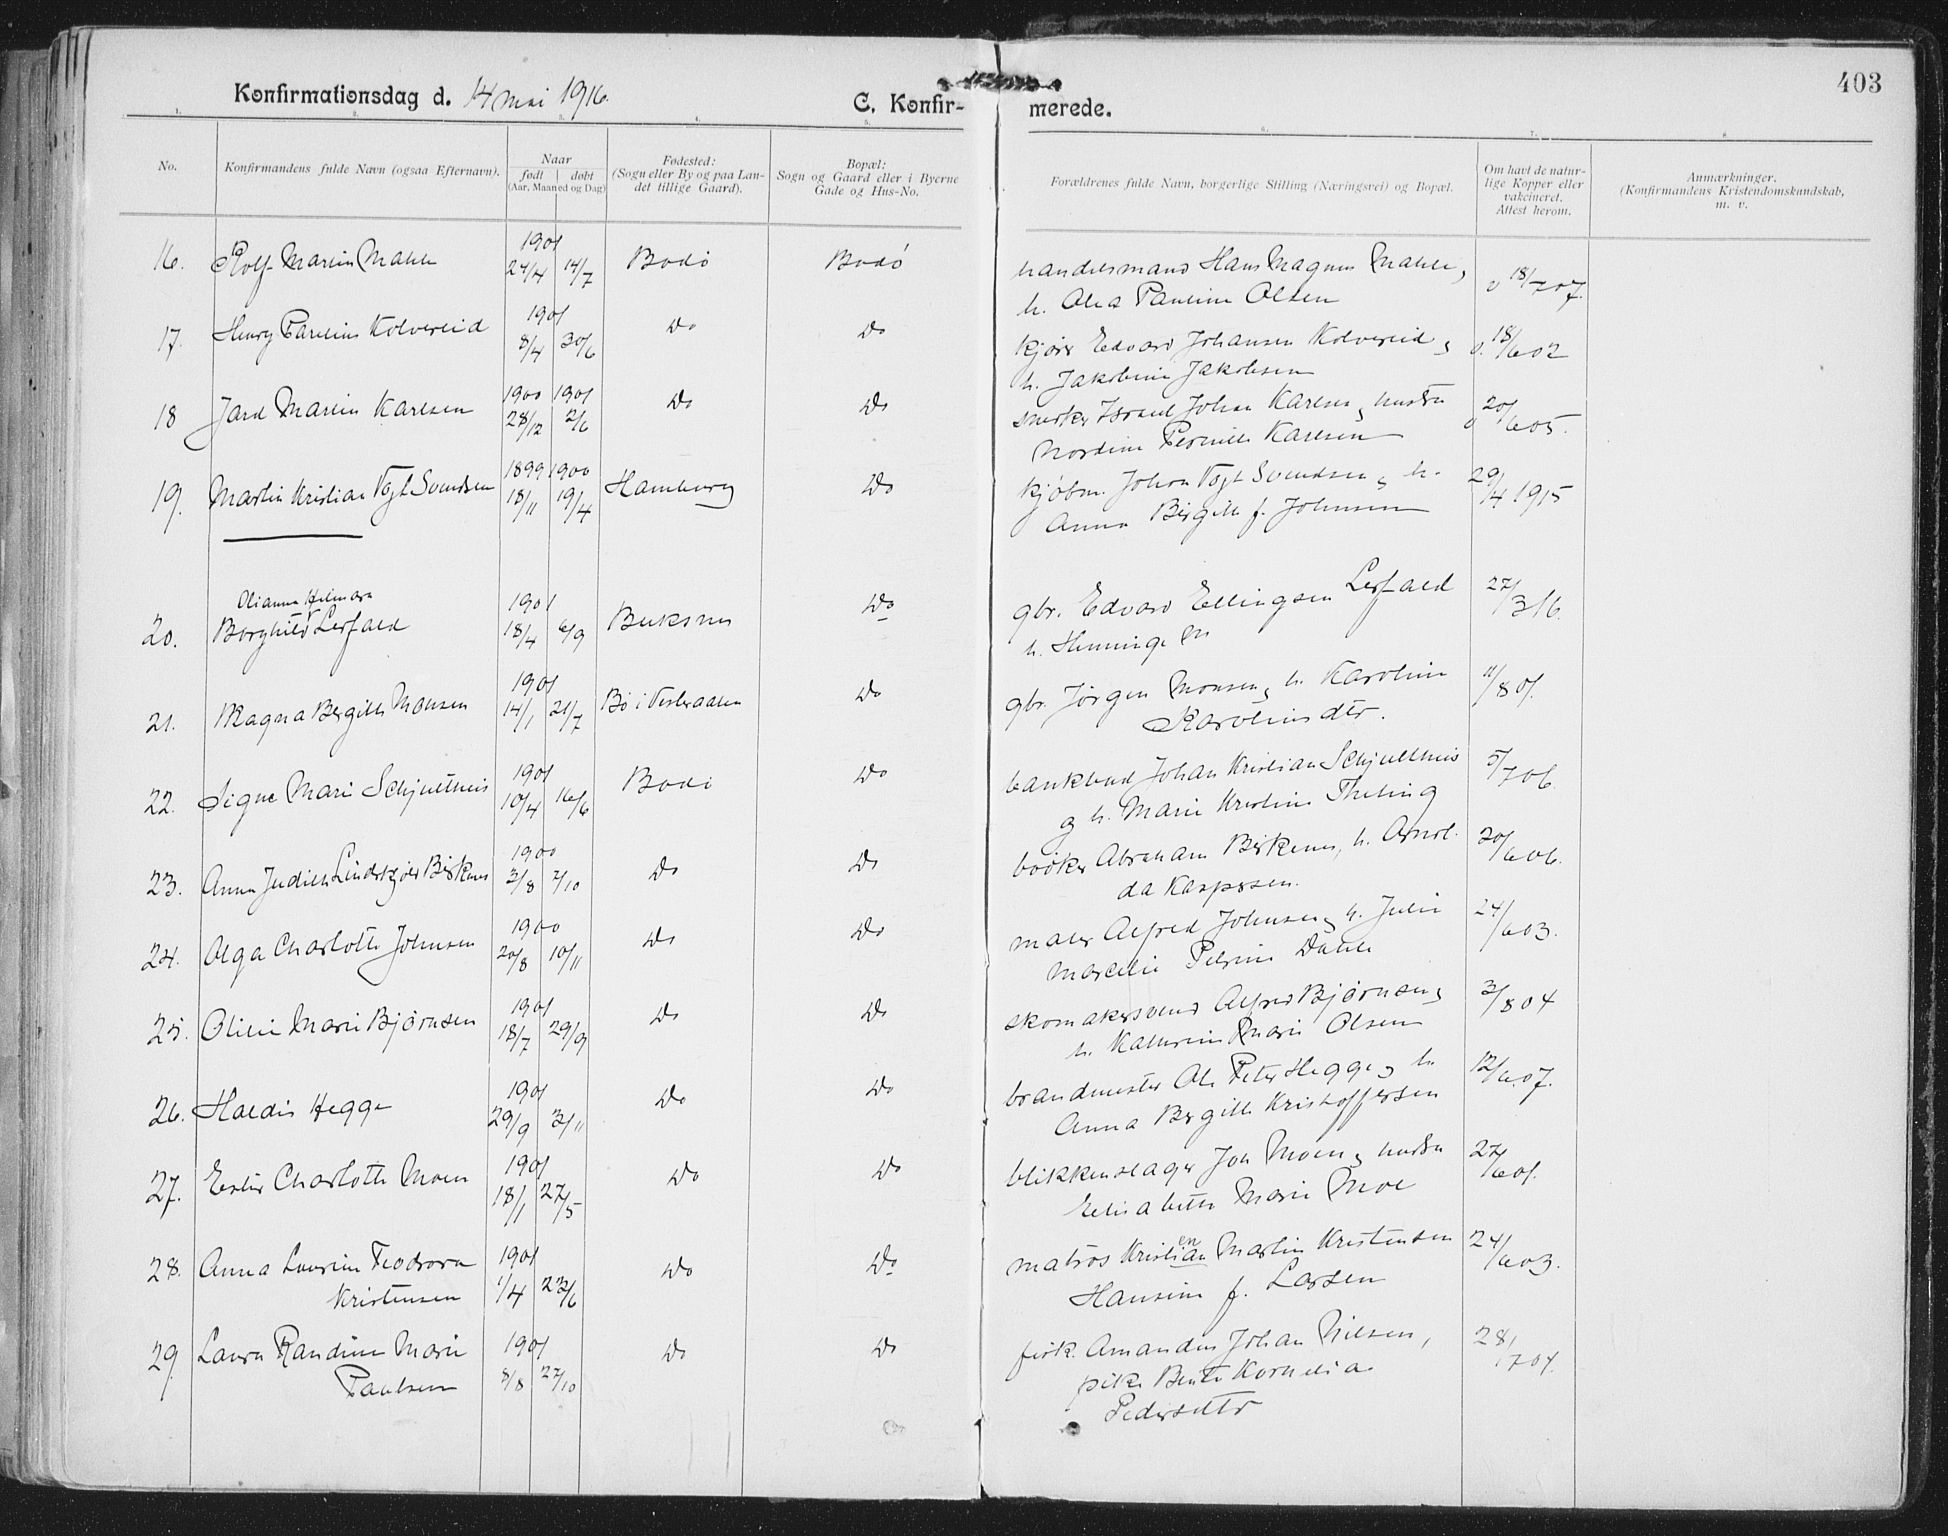 403
Konfirmationsdag d. 14 mai 1916.
C. Konfir-
merede.
1. 2. 3. 4. 5. 6. 7. 8.
No.
Konfirmandens fulde Navn (ogsaa Efternavn).
Naar
født | døbt
(Aar, Maaned og Dag)
Fødested:
(Sogn eller By og paa Lan-
det tillige Gaard).
Bopæl:
Sogn og Gaard eller i Byerne
Gade og Hus-No.
Forældrenes fulde Navn, borgerlige Stilling (Næringsvei) og Bopæl.
Om havt de natur-
lige Kopper eller
vakcineret.
Attest herom.
Anmærkninger.
(Konfirmandens Kristendomskundskab,
m. v.
1901
16. Rolf Martin 24/4 14/7 Bodø Bodø handelsmand Hans Magnus
h. Pauline Olsen v 18/7 07.
1901
17. Henry Kolvereid 8/4 30/6 Do Do kjører Edvard Johansen Kolvereid,
h. Jakobine Jakobsen v. 18/6 02
1900 1901
18 Martin Karlsen 28/12 2/6 Do Do snekker Johan Karlsen, hustru
Nordine Pernille Karlsen v 20/6 05.
1899 1900
19. Martin Kristian Vogt Svendsen 18/11 19/4 Hamburg Do kjøbm. Johan Vogt Svendsen, h.
Anna Birgitte f. Johnsen 29/4 1915
Olianna Hilmara
1901
20. Borghild Lerfald 18/4 6/9 Buksnes Do gbr. Edvard Ellingsen Lerfald
h. Henninge 27/3 16.
1901
21. Magna Bergitte Monsen 14/1 21/7 Bø i Vesteraalen Do gbr. Jørgen Monsen, h. Karoline
Karolinusdtr. 11/8 01.
1901
22. Signe Marie Schjultheis 10/4 16/6 Bodø Do bankbud Johan Kristian Schjultheis
og h. Marie Kristine 5/7 06.
1900
23. Anna Judith Birkenes 3/8 7/10 Do Do bødker Abraham Birkenes, h. Arnol-
da Kaspersen. 20/6 06.
1900
24. Olga Charlotte Johnsen 20/8 10/11 Do Do maler Alfred Johnsen, h. Julie
Marselie Petrine Dahle 24/6 03.
1901
25. Olivie Marie Bjørnsen 18/7 29/9 Do Do skomakersvend Alfred Bjørnsen,
h. Kathrine Marie Olsen 3/8 04
1901
26. Haldis Hegge 29/9 3/11 Do Do brandmester Ole Peter Hegge, h.
Anna Bergitte Kristoffersen 12/6 07.
1901
27. Ester Charlotte Moen 18/1 27/5 Do Do blikkenslager Jon Moen, hustru
Elisabeth Marie Moe 27/6 01.
1901
28. Anna Laurine Feodrora 1/4 23/6 Do Do matros Kristian Martin Kristensen
en
Kristensen Hansine f. Larsen 24/6 03.
1901
29. Laura Randine Marie 8/8 27/10 Do Do fisk. Amandus Johan Nilsen,
Paulsen pike Bente Kornelia
Pedersdtr 28/7 04.